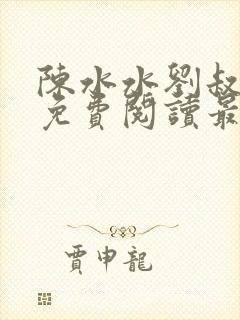 陳水水劉叔
免費閱讀最
賈申龍